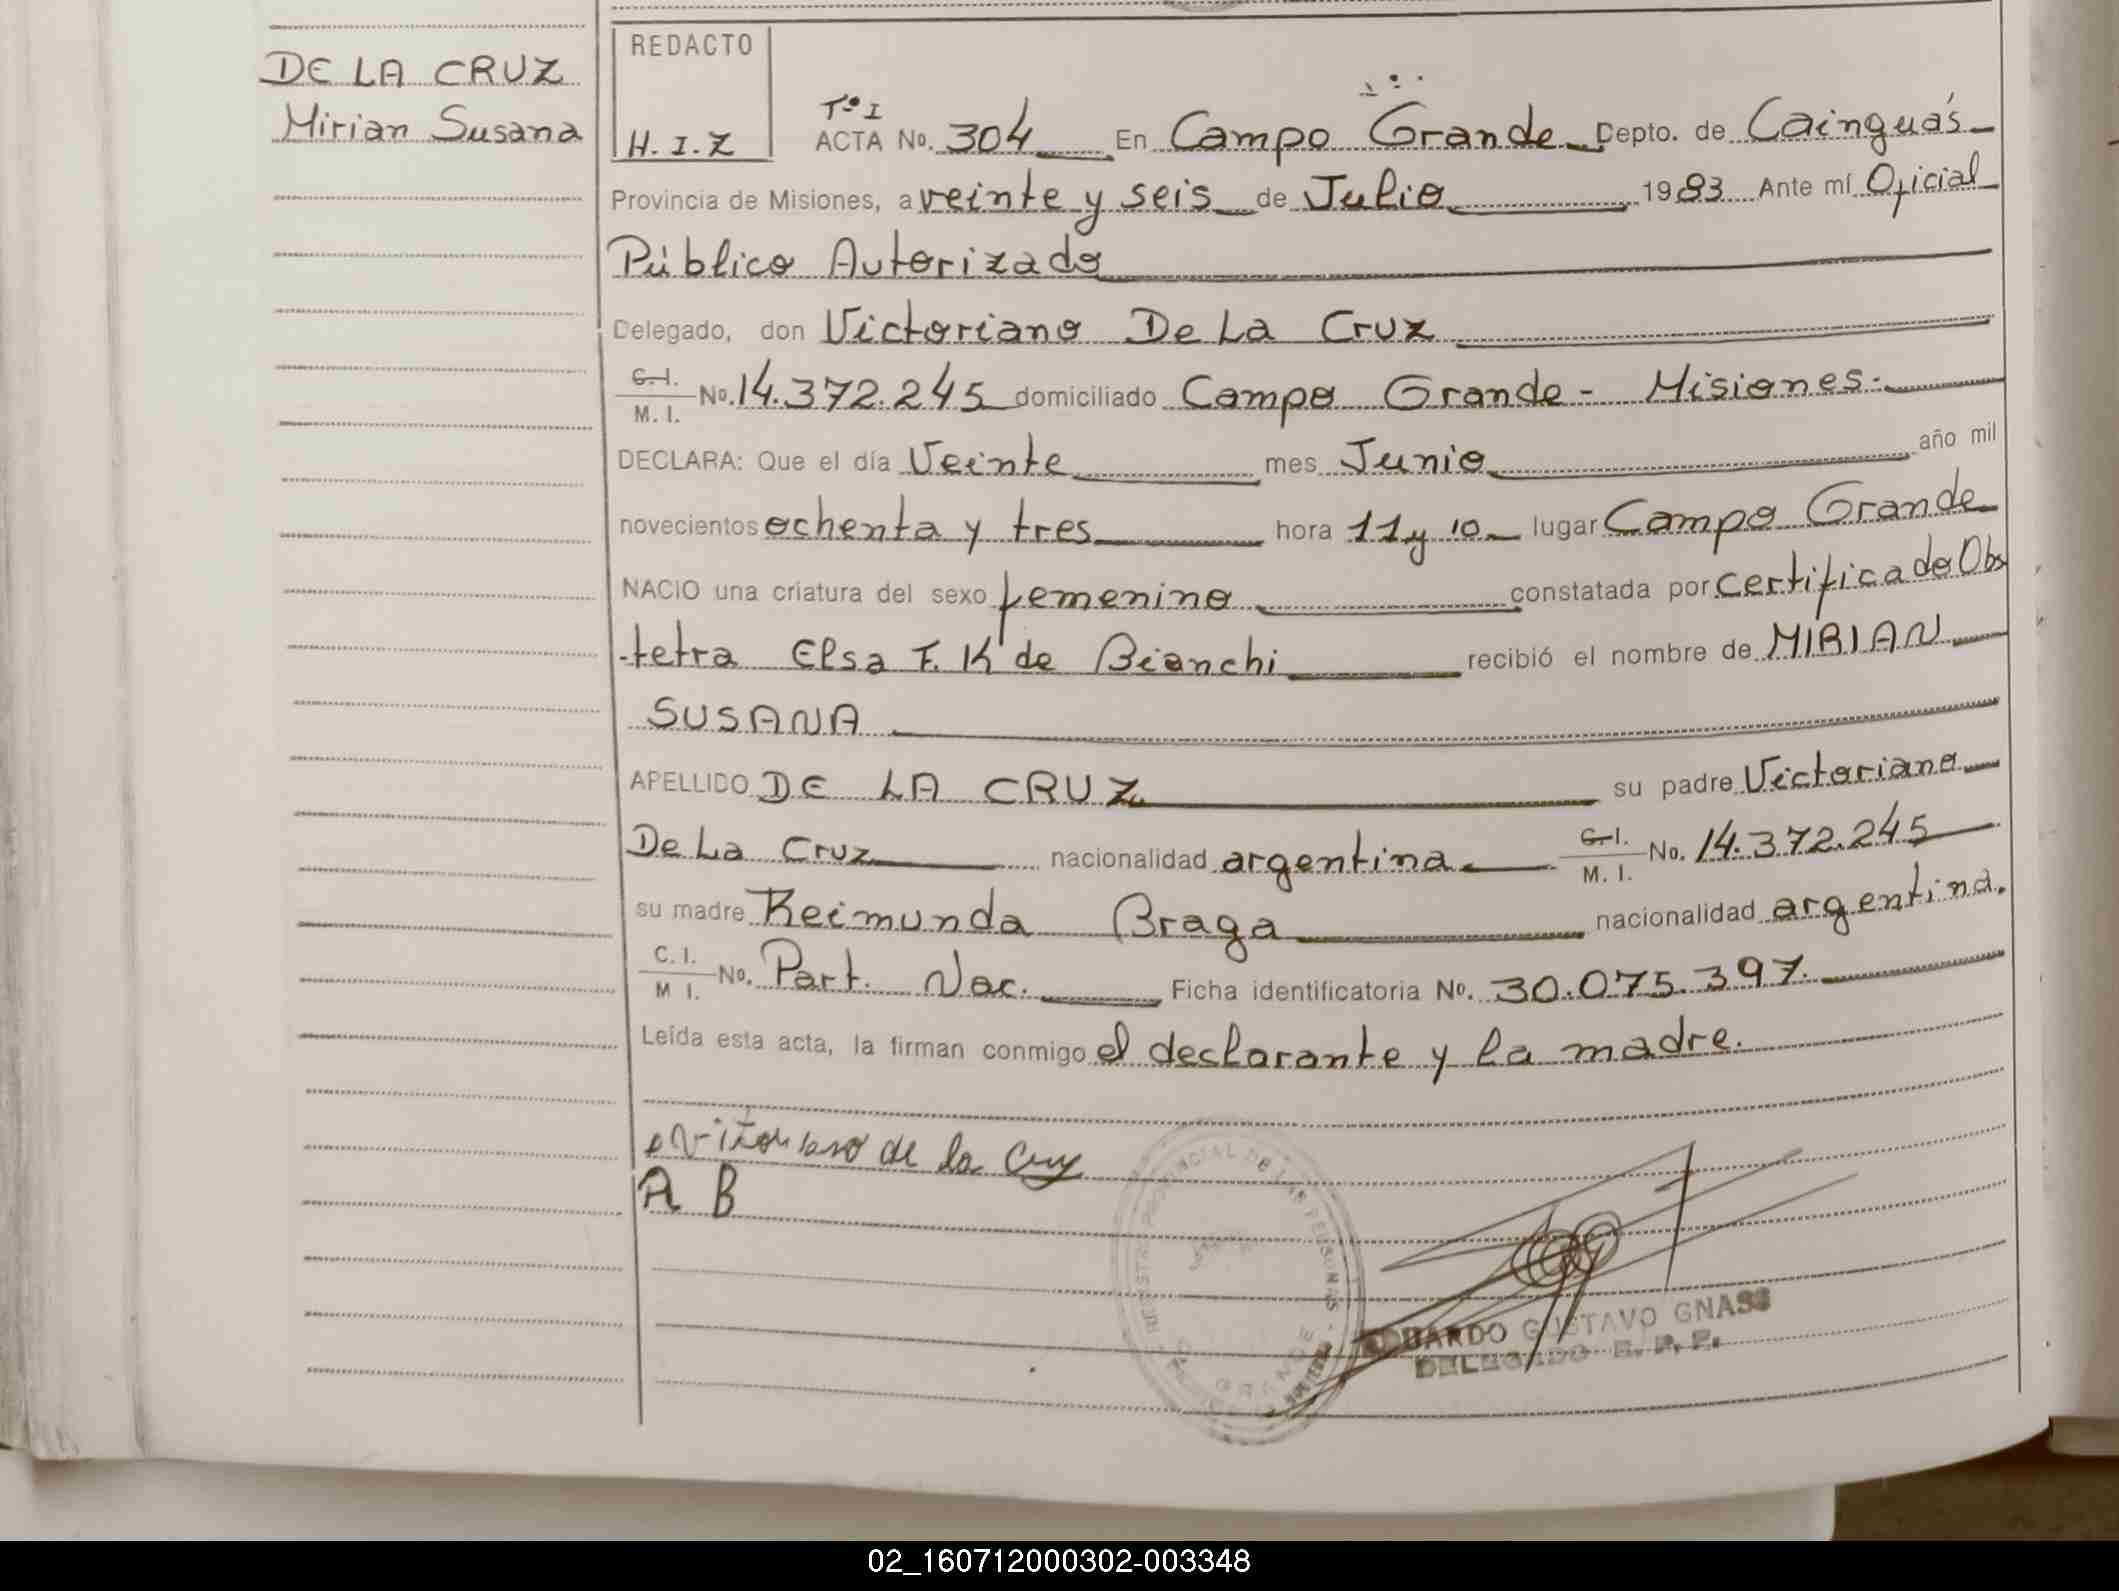 DE LA CRUZ
Mirian Susana
REDACTO
H.I.Z
Tº I
ACTA No. 304 En Campo Grande Depto. de Cainguás
Provincia de Misiones, a veinte y seis de Julio 1983 Ante mí Oficial
Público Autorizado
Delegado, don Victoriano De La Cruz
C.I.
M. I. No. 14.372.245 domiciliado Campo Grande - Misiones.-
DECLARA: Que el día Veinte mes Junio año mil
novecientos ochenta y tres hora 11 y 10 lugar Campo Grande
NACIO una criatura del sexo femenino constatada por certificado Obs
tetra Elsa F. K de Bianchi recibió el nombre de MIRIAN
SUSANA
APELLIDO DE LA CRUZ su padre Victoriano
De La Cruz nacionalidad argentina C.I.
M. I. No. 14.372.245
su madre Reimunda Braga nacionalidad argentina.
C. I.
M I. No. Part. Nac. Ficha identificatoria No. 30.075.397.
Leída esta acta, la firman conmigo el declarante y la madre.
de la Cruz
A B
REGISTRO PROVINCIAL DE LAS PERSONAS
GRANDE
EDUARDO GUSTAVO GNASS
DELEGADO R. P. P.
02_160712000302-003348